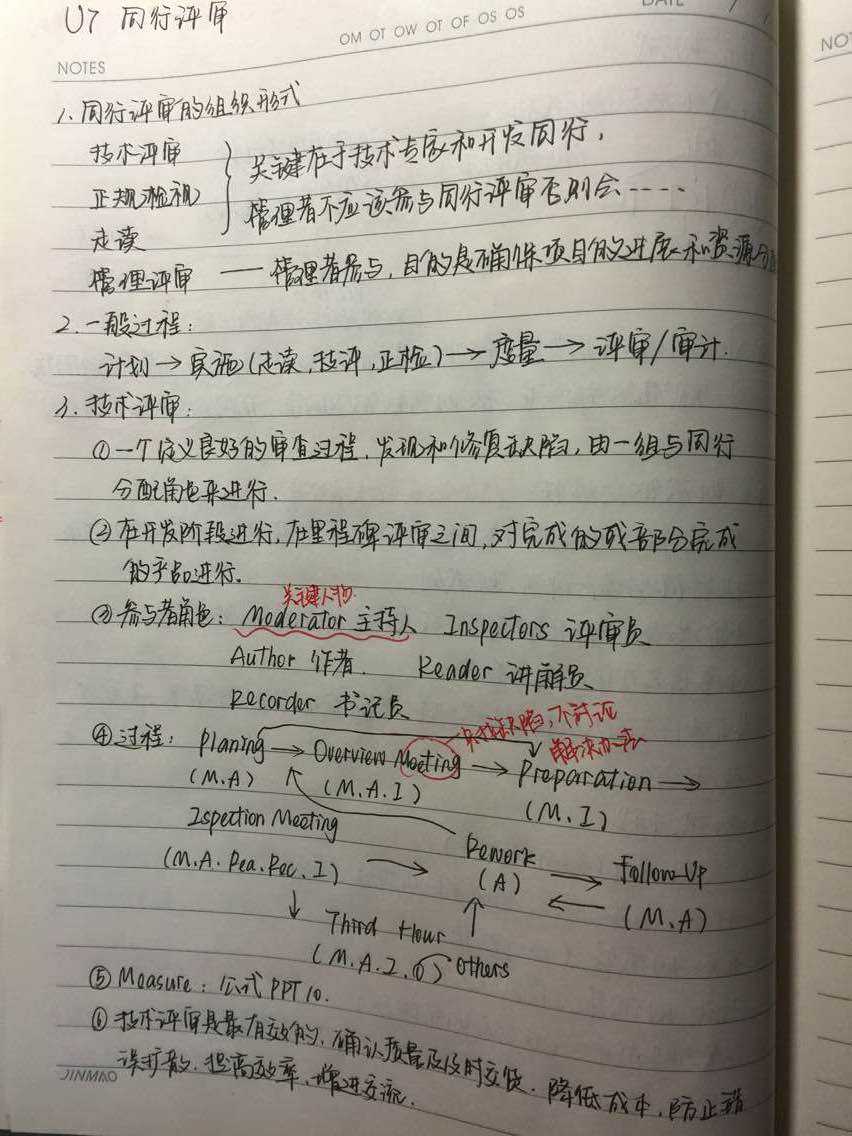 U7 同行评审
OM OT OW OT OF OS OS
DATE
NOTES
NO
1. 同行评审的组织形式
技术评审
正规检视
走读
关键在于技术专家和开发同行,
管理者不应该参与同行评审否则会……
管理评审 —— 管理者参与, 目的是确保项目的进展和资源分
2. 一般过程:
计划 → 实施(走读, 技评, 正检) → 度量 → 评审/审计.
3. 技术评审:
① 一个定义良好的审查过程, 发现和修复缺陷, 由一组与同行
分配角色来进行.
② 在开发阶段进行, 在里程碑评审之间, 对完成的或部分完成
的产品进行。
关键人物
③ 参与者角色: Moderator 主持人 Inspectors 评审员
Author 作者. Reader 讲解员
Recorder 书记员
只找缺陷, 不讨论
解决办法
④ 过程: Planing → Overview Meeting → Preparration →
(M.A) (M.A.I) (M.I)
Ispection Meeting Rework Follow-Up
(M.A. Rea. Rec. I) → (A) (M.A)
↓ Third Hour ↑
(M.A.I.O) Others
⑤ Measure: 公式 PPT 10.
⑥ 技术评审是最有效的, 确认质量及及时交货. 降低成本, 防止错
误扩散. 提高效率, 增进交流.
JINMAO